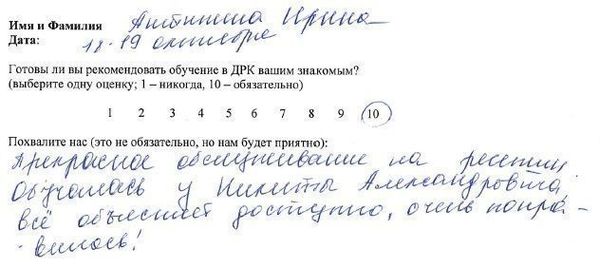 Имя и Фамилия Антипина Ирина
Дата: 18-19 октября
Готовы ли вы рекомендовать обучение в ДРК вашим знакомым?
(выберите одну оценку; 1 – никогда, 10 – обязательно)
1 2 3 4 5 6 7 8 9 10
Похвалите нас (это не обязательно, но нам будет приятно):
Прекрасное обслуживание на
Обучалась у Никиты Александровича,
всё объясняет доступно, очень понра-
вилось!